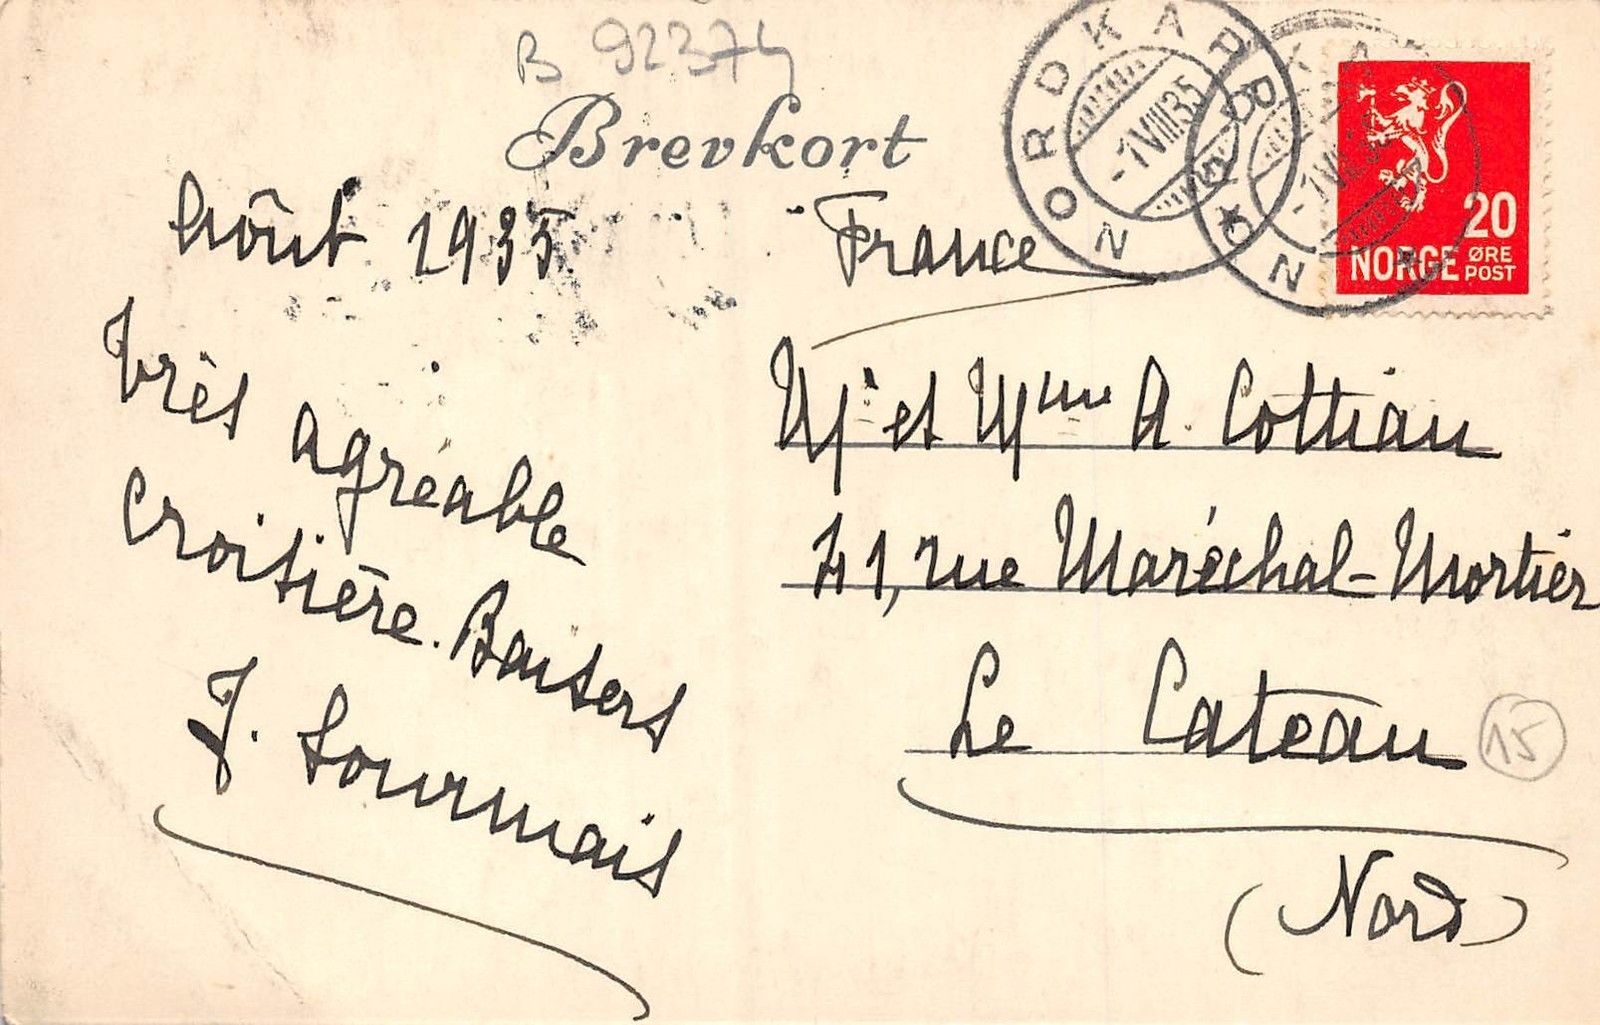 B 92374
Brevkort
NORDKAPP
-7 VIII 35
NORGE
20
ØRE
POST
Août 1935.
Très agréable
Croisière. Baisers
J. Sourmais
France
Mr et Mme A. Cottiau
41, rue Maréchal-Mortier
Le Cateau
15
(Nord)